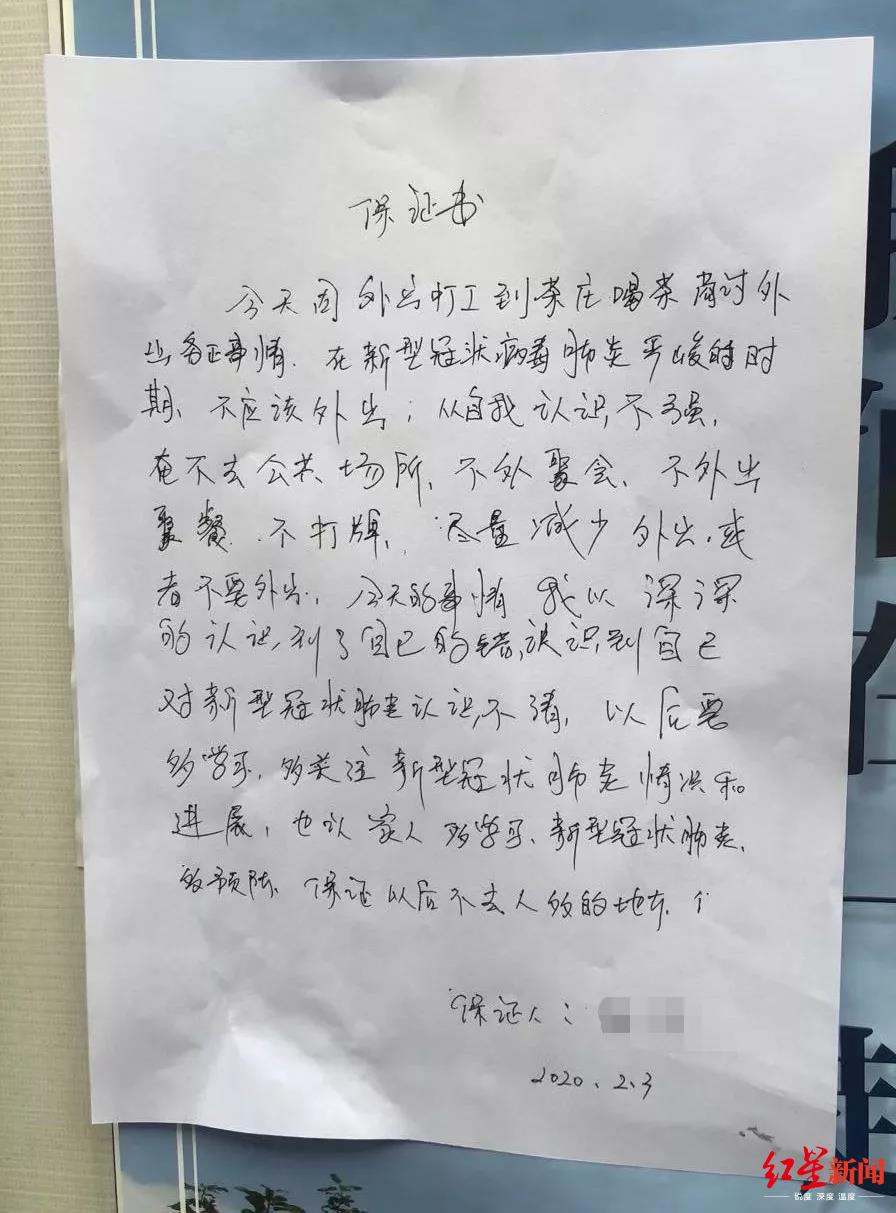 保证书
今天因外出打工到茶庄喝茶商讨外
出务工事情.在新型冠状病毒肺炎严峻的时
期、不应该外出；从自我认识不强,
不去公共场所、不外聚会、不外出
聚餐.不打牌,尽量减少外出.或
者不要外出,今天的事情我以深深
的认识到了自己的错,误识到自己
对新型冠状肺炎认识不清,以后要
多学习,多关注新型冠状肺炎情况和
进展,也让家人多学习、新型冠状肺炎、
的预防.保证以后不去人多的地方.
保证人：
2020.2.3
红星新闻
锐度 深度 温度